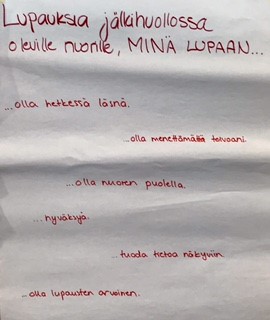 Lupauksia jälkihuollossa
oleville nuorille, MINÄ LUPAAN...
...olla hetkessä läsnä.
...olla menettämättä toivoani.
...olla nuoren puolella.
...hyväksyä.
...tuoda tietoa näkyviin.
...olla lupausten arvoinen.